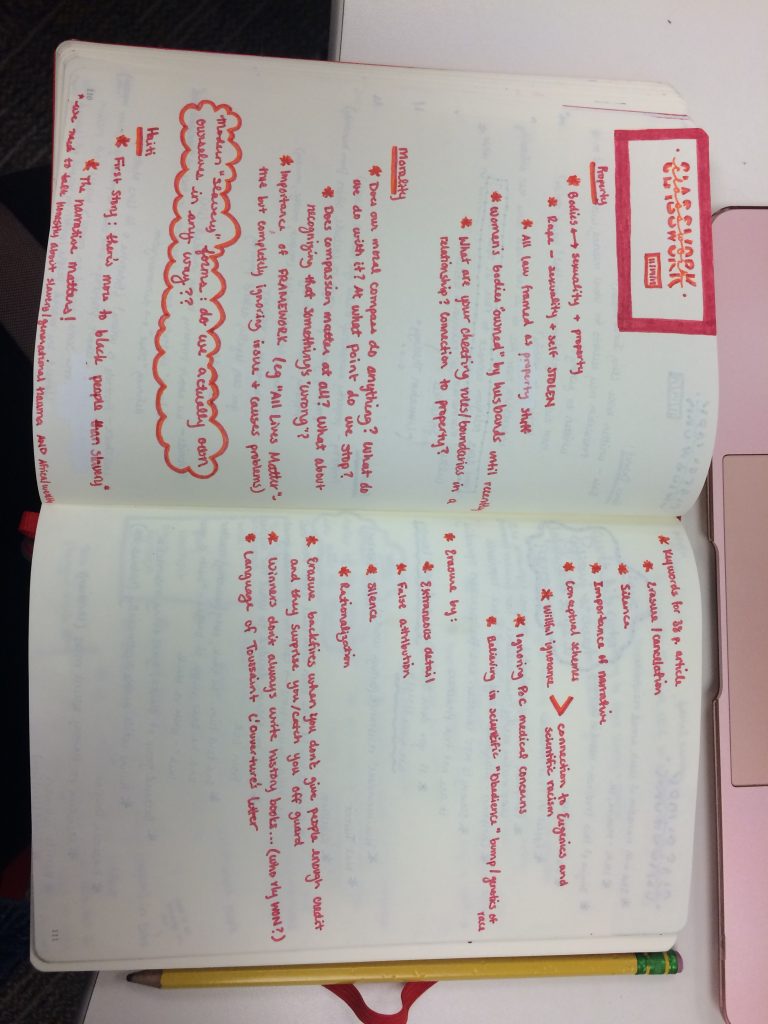 CLASSWORK
classwork
CLASSWORK
Property
* Bodies ↔ sexuality + property
* Rape - sexuality + self STOLEN
* All law framed as property stuff
* Women's bodies "owned" by husbands until recently
* What are your cheating rules/boundaries in a
relationship? Connection to property?
Morality
* Does our moral compass do anything? What do
we do with it? At what point do we stop?
* Does compassion matter at all? What about
recognizing that something's "wrong"?
* Importance of FRAMEWORK (eg "All Lives Matter" -
true but completely ignoring issue + causes problems)
Modern "slavery" forms: do we actually own
ourselves in any way??
Haiti
* First story: there's more to black people than slavery"
* The narrative matters!
*we need to talk honestly about slavery/generational trauma AND Africa/
110
* Keywords for 38 p. article
* Erasure/cancellation
* Silence
* Importance of narrative
* Conceptual schemes
* Willful ignorance > connection to Eugenics and
scientific racism
* Ignoring PoC medical concerns
* Believing in scientific "Obedience" bump/genetics of
race
* Erasure by:
* Extraneous detail
* False attribution
* Silence
* Rationalization
* Erasure backfires when you don't give people enough credit
and they surprise you/catch you off guard
* Winners don't always write history books... (who rly WON?)
* Language of Toussaint L'Ouverture's letter
111